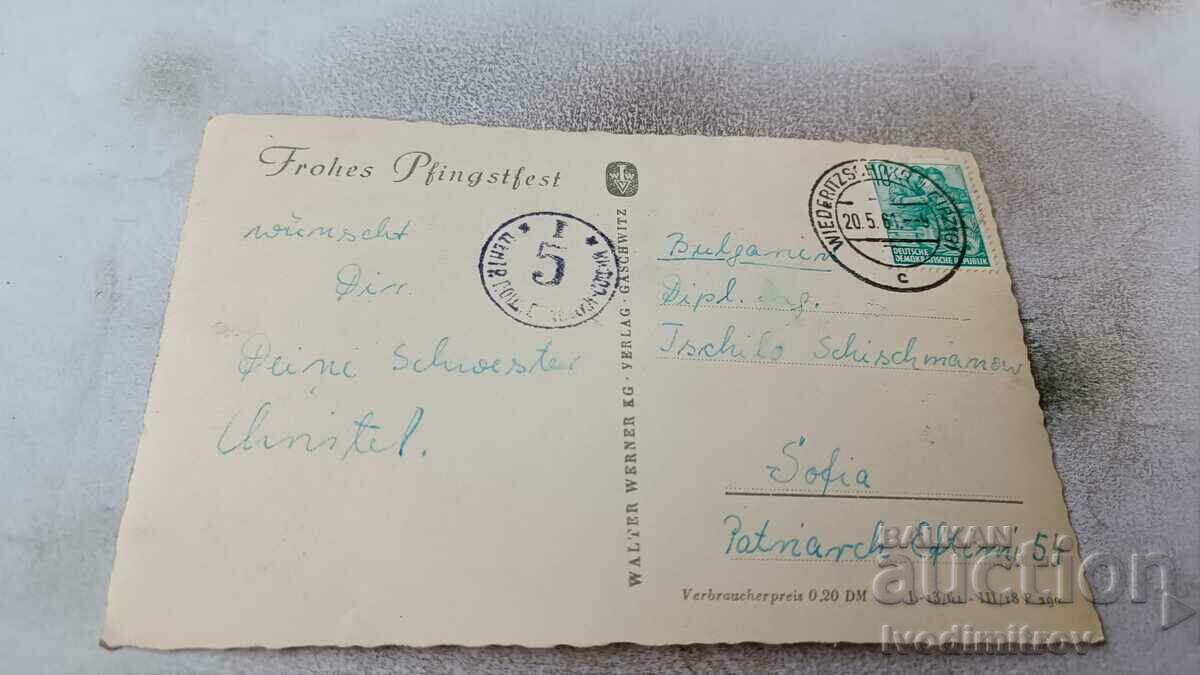 Frohes Pfingstfest
wünscht
Dir
Deine Schwester
Christel.
57
WALTER WERNER KG · VERLAG · GASCHWITZ
WIEDERITZSCH
20.5.61
c
10
DEUTSCHE
DEMOKRATISCHE REPUBLIK
Bulgarien
Dipl. Ing.
Tschilo Schischmanow
Sofia
Patriarch Eftimi 54
Verbraucherpreis 0,20 DM
BALKAN
auction
Ivodimitrov